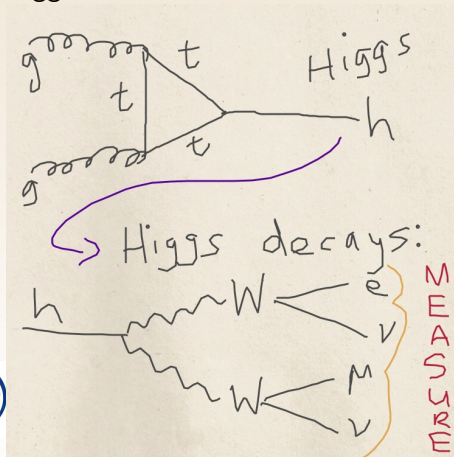 g
t
t
t
g
Higgs
h
Higgs decays:
h
W
e
ν
W
μ
ν
MEASURE